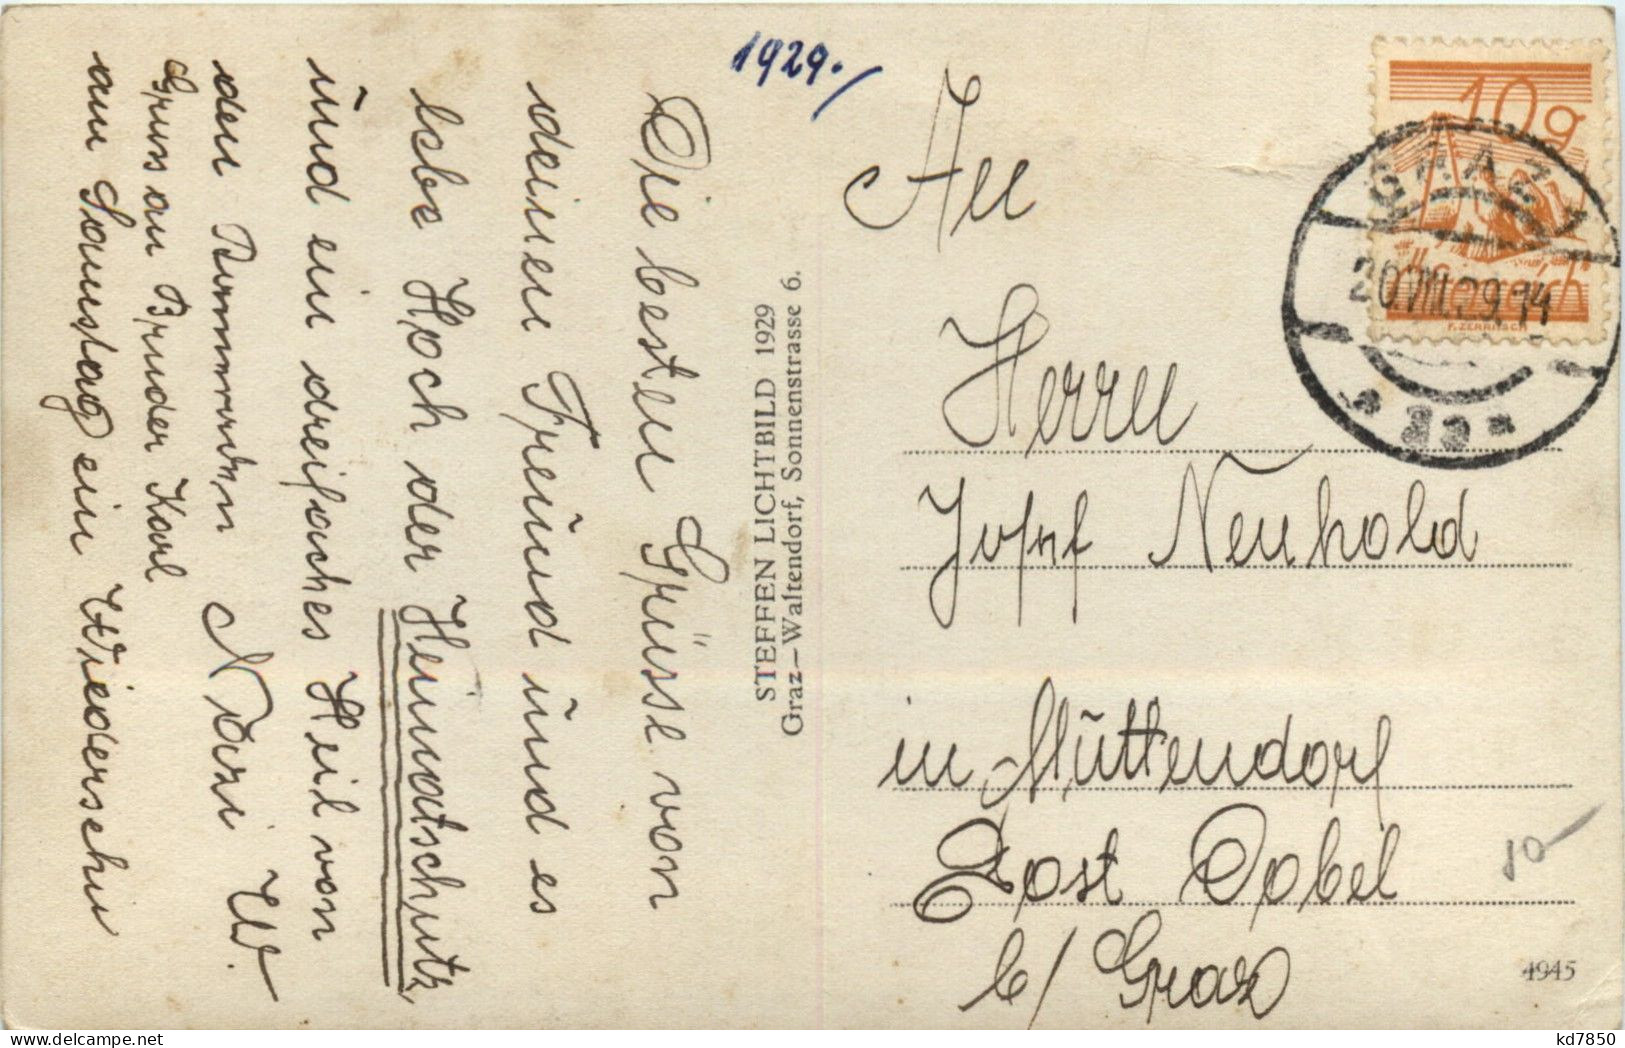 1929.
Die besten Grüsse von
deinen Freund und es
lebe Hoch der Heimatschutz,
und ein dreifaches Heil von
den Nazi W.
Gruss an Bruder Karl
am Samstag ein Wiedersehn
STEFFEN LICHTBILD 1929
Graz–Waltendorf, Sonnenstrasse 6.
An
Herrn
Josef Neuhold
in Müttendorf
Post Dobel
b/ Graz
10-
4945
10g
Österreich
F. ZERRITSCH
GRAZ 1
20.VIII.29.14
kd7850